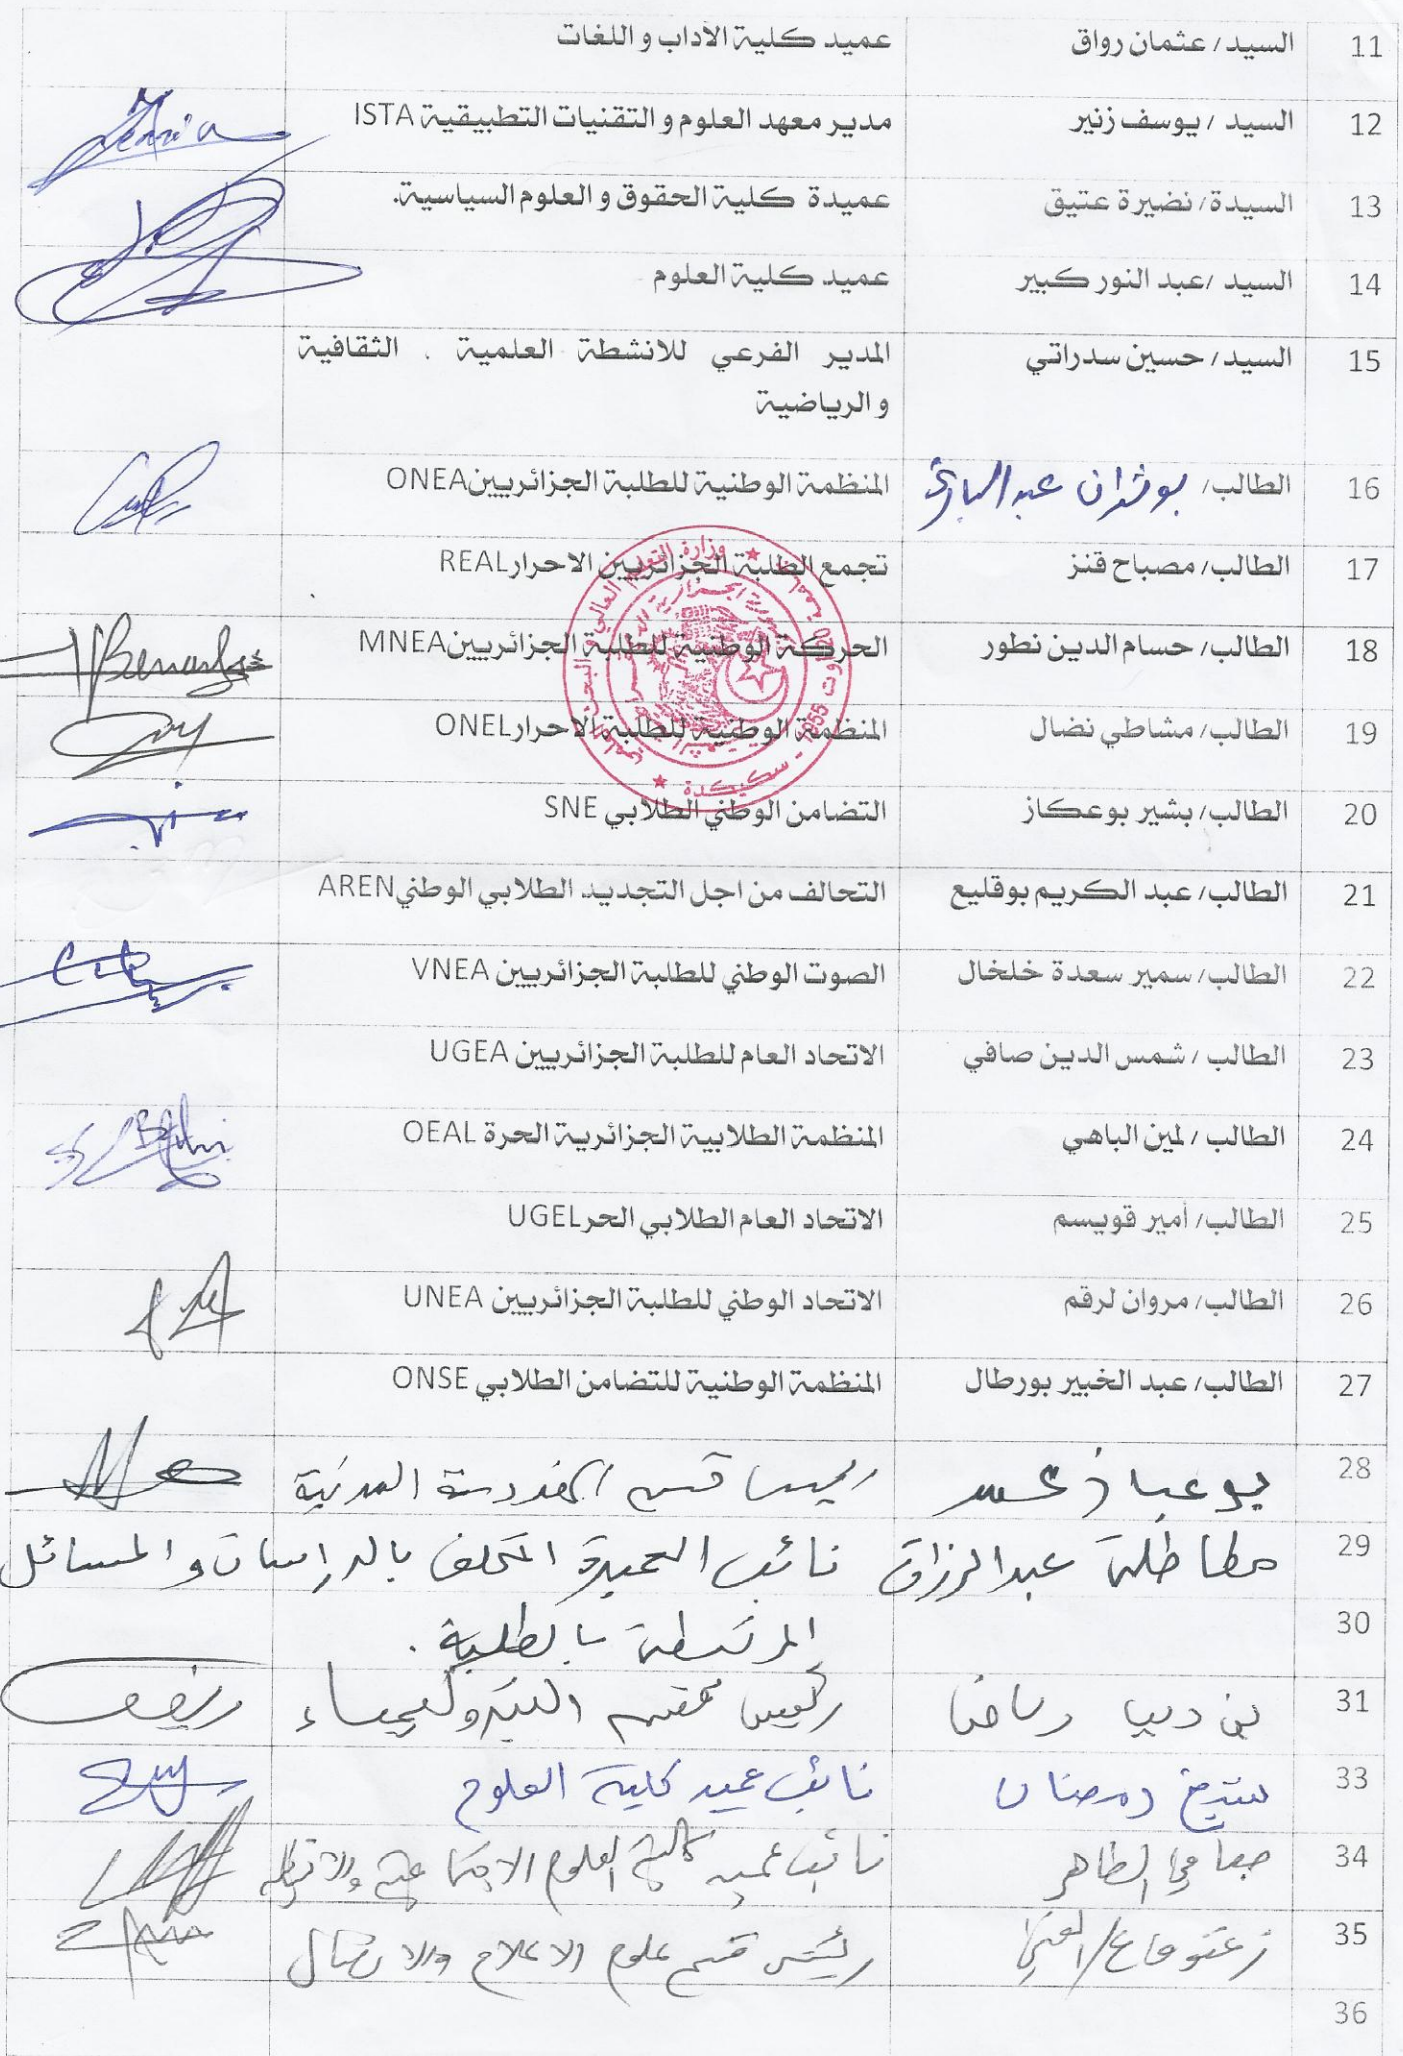 11 السيد / عثمان رواق عميد كلية الآداب و اللغات
12 السيد / يوسف زنير مدير معهد العلوم و التقنيات التطبيقية ISTA
13 السيدة/ نضيرة عتيق عميدة كلية الحقوق و العلوم السياسية.
14 السيد /عبد النور كبير عميد كلية العلوم
15 السيد/ حسين سدراتي المدير الفرعي للانشطة العلمية . الثقافية
و الرياضية
16 الطالب/ عبد الباري المنظمة الوطنية للطلبة الجزائريين ONEA
17 الطالب/ مصباح قنز تجمع الطلبة الجزائريين الاحرار REAL
18 الطالب/ حسام الدين نطور الحركة الوطنية للطلبة الجزائريين MNEA
19 الطالب/ مشاطي نضال المنظمة الوطنية للطلبة الاحرار ONEL
20 الطالب/ بشير بوعكاز التضامن الوطني الطلابي SNE
21 الطالب/ عبد الكريم بوقليع التحالف من اجل التجديد الطلابي الوطني AREN
22 الطالب/ سمير سعدة خلخال الصوت الوطني للطلبة الجزائريين VNEA
23 الطالب / شمس الدين صافي الاتحاد العام للطلبة الجزائريين UGEA
24 الطالب / لمين الباهي المنظمة الطلابية الجزائرية الحرة OEAL
25 الطالب/ أمير قويسم الاتحاد العام الطلابي الحر UGEL
26 الطالب/ مروان لرقم الاتحاد الوطني للطلبة الجزائريين UNEA
27 الطالب/ عبد الخبير بورطال المنظمة الوطنية للتضامن الطلابي ONSE
28 رئيس قسم الهندسة المدنية
29 عبد الرزاق نائب العميدة المكلف بالدراسات و المسائل
30 المرتبطة بالطلبة .
31 رئيس قسم البتروكيمياء
33 رمضان نائب عميد كلية العلوم
34 الطاهر نائب عميد كلية العلوم الاجتماعية
35 رئيس قسم علوم الاعلام والاتصال
36